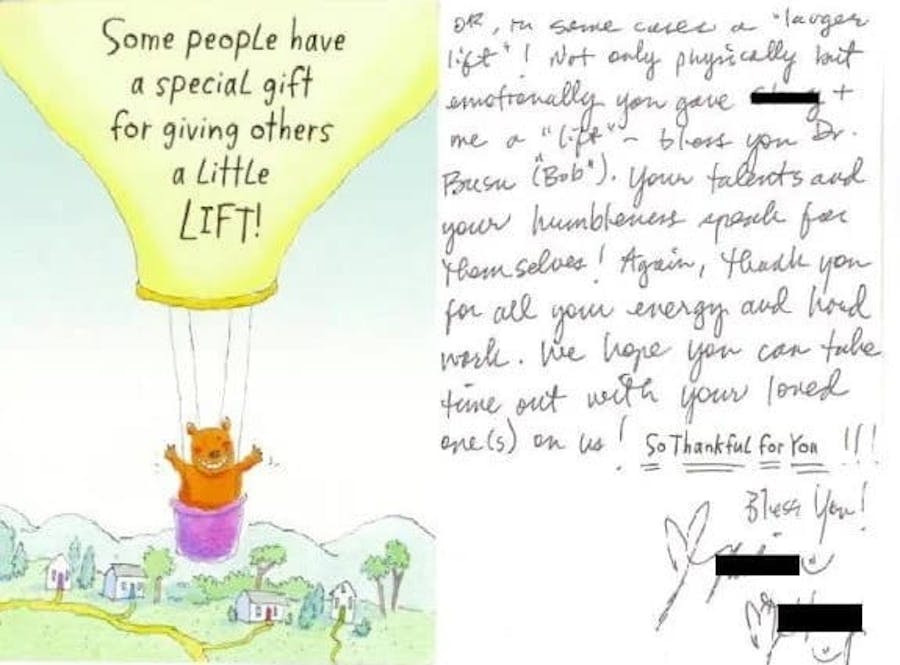 Some people have
a special gift
for giving others
a little
LIFT!
OR, in some cases a "larger
lift"! Not only physically but
emotionally you gave +
me a "lift" - bless you Dr.
Busu ("Bob"). Your talents and
your humbleness speak for
themselves! Again, thank you
for all your energy and hard
work. We hope you can take
time out with your loved
one(s) on us! So Thankful for You !!!
Bless You!